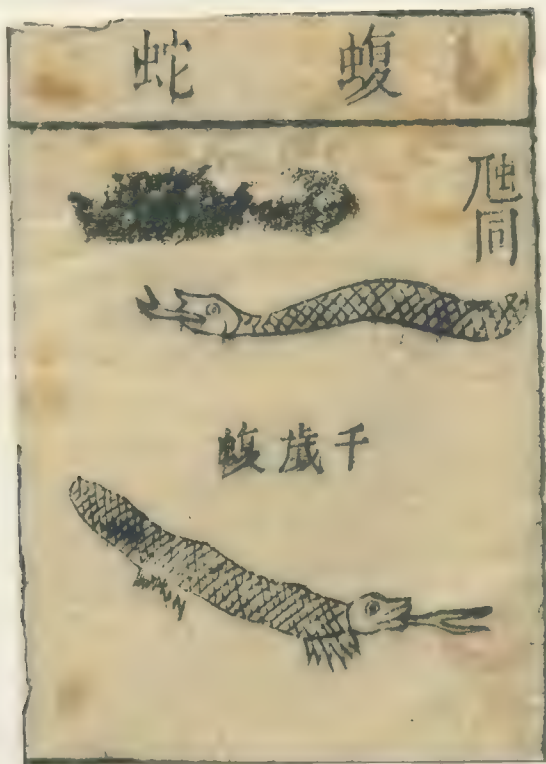 蝮蛇
虺同
千歲蝮